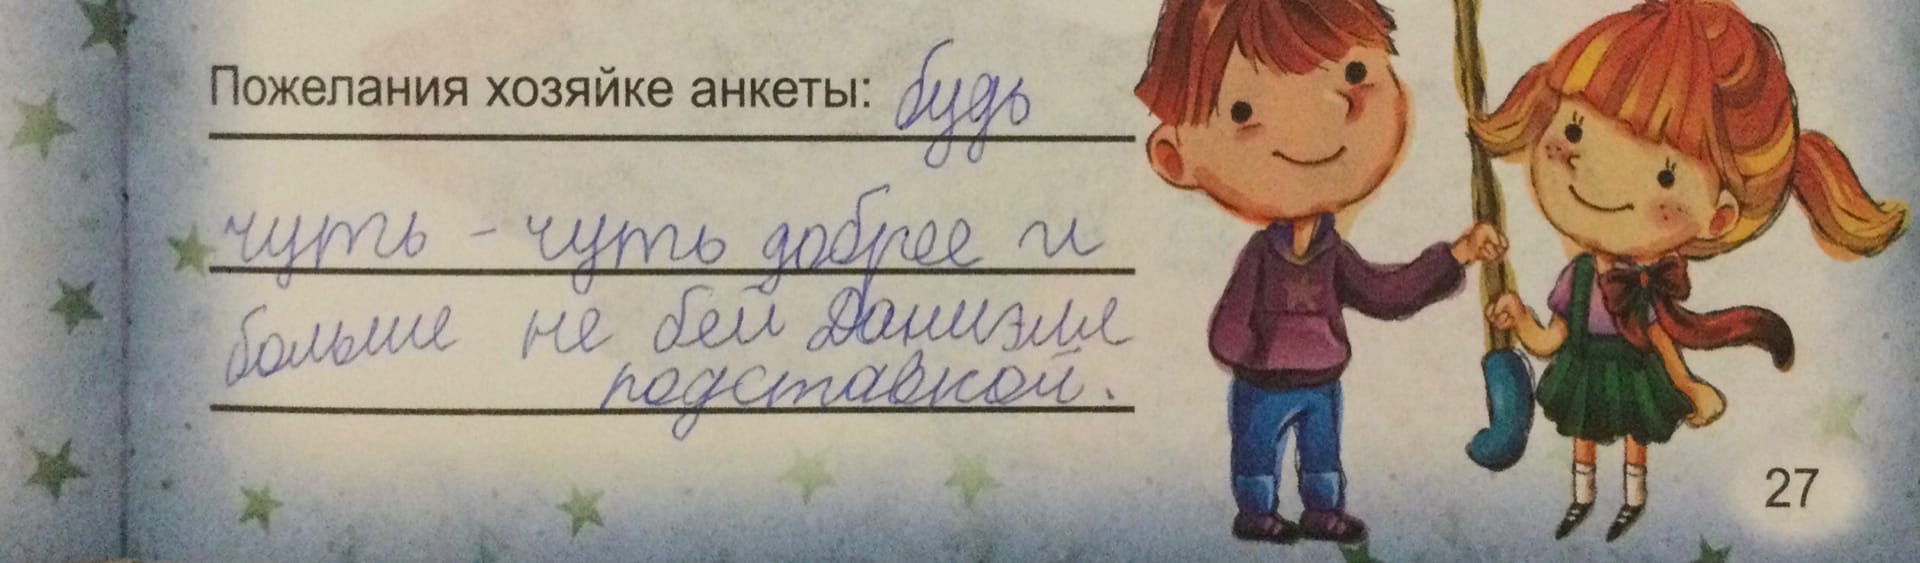 Пожелания хозяйке анкеты: будь
чуть - чуть добрее и
больше не бей Даниэля
подставкой.
27